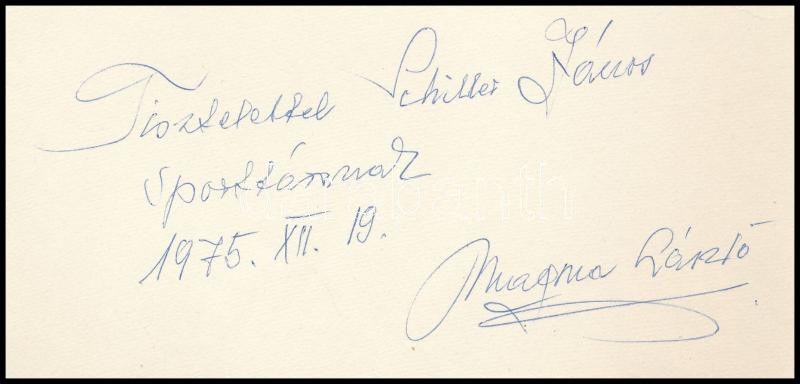 Tisztelettel Schiller János
sporttársnak
1975. XII. 19.
Magna László